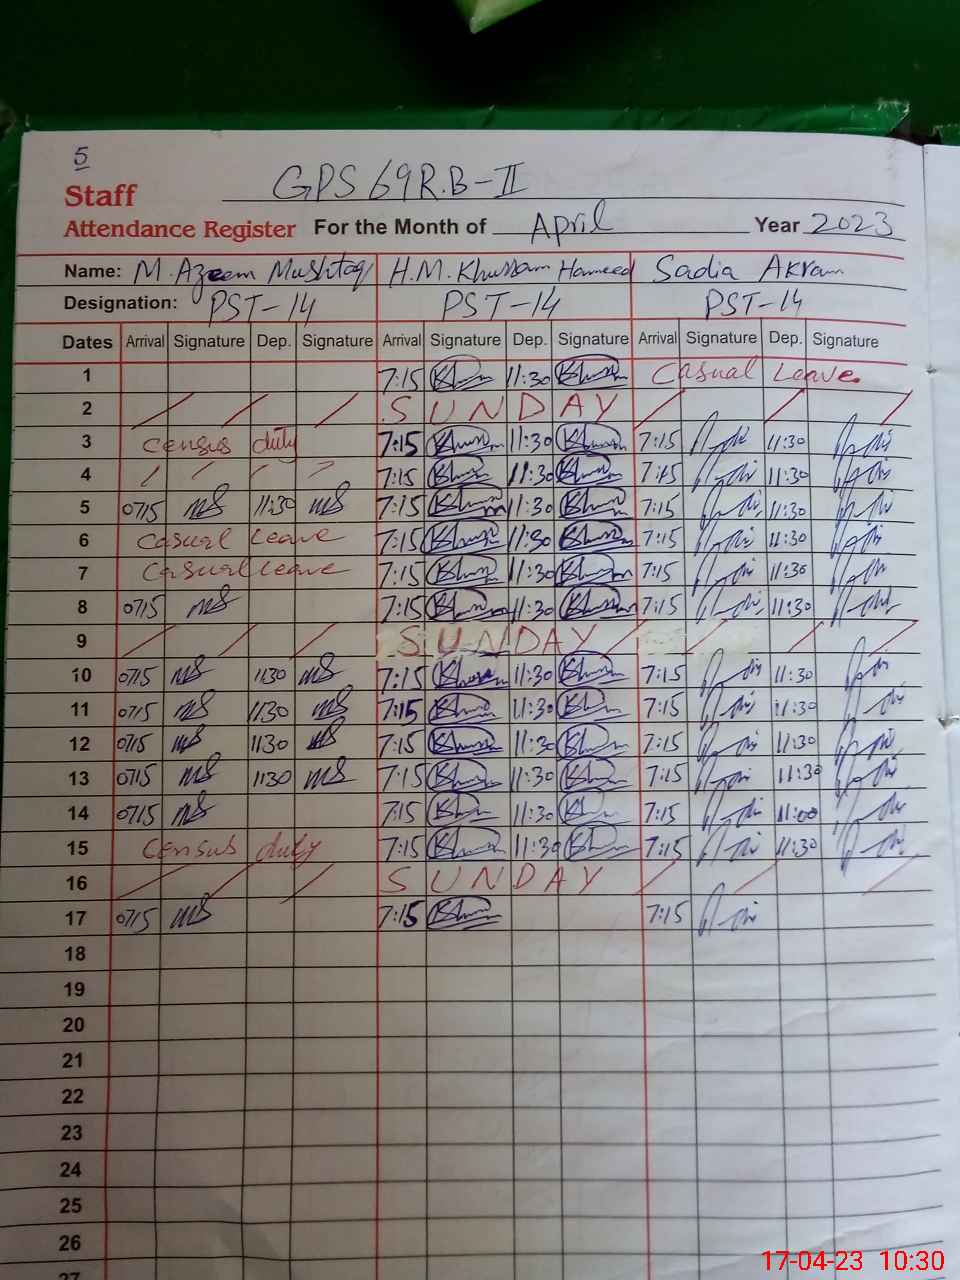 5
GPS 69R.B-II
Staff
Attendance Register For the Month of April Year 2023
Name: M. Azeem Mushtaq H.M. Khussam Hameed Sadia Akram
Designation: PST-14 PST-14 PST-14
Dates Arrival Signature Dep. Signature Arrival Signature Dep. Signature Arrival Signature Dep. Signature
1 7:15 11:30 Casual Leave
2 SUNDAY
3 Census duty 7:15 11:30 7:15 11:30
4 7:15 11:30 7:15 11:30
5 0715 11:30 7:15 11:30 7:15 11:30
6 Casual Leave 7:15 11:30 7:15 11:30
7 Casual leave 7:15 11:30 7:15 11:30
8 0715 7:15 11:30 7:15 11:30
9 SUNDAY
10 0715 1130 7:15 11:30 7:15 11:30
11 0715 1130 7:15 11:30 7:15 11:30
12 0715 1130 7:15 11:30 7:15 11:30
13 0715 1130 7:15 11:30 7:15 11:30
14 0715 7:15 11:30 7:15 11:00
15 Census duty 7:15 11:30 7:15 11:30
16 SUNDAY
17 0715 7:15 7:15
18
19
20
21
22
23
24
25
26
27
17-04-23 10:30